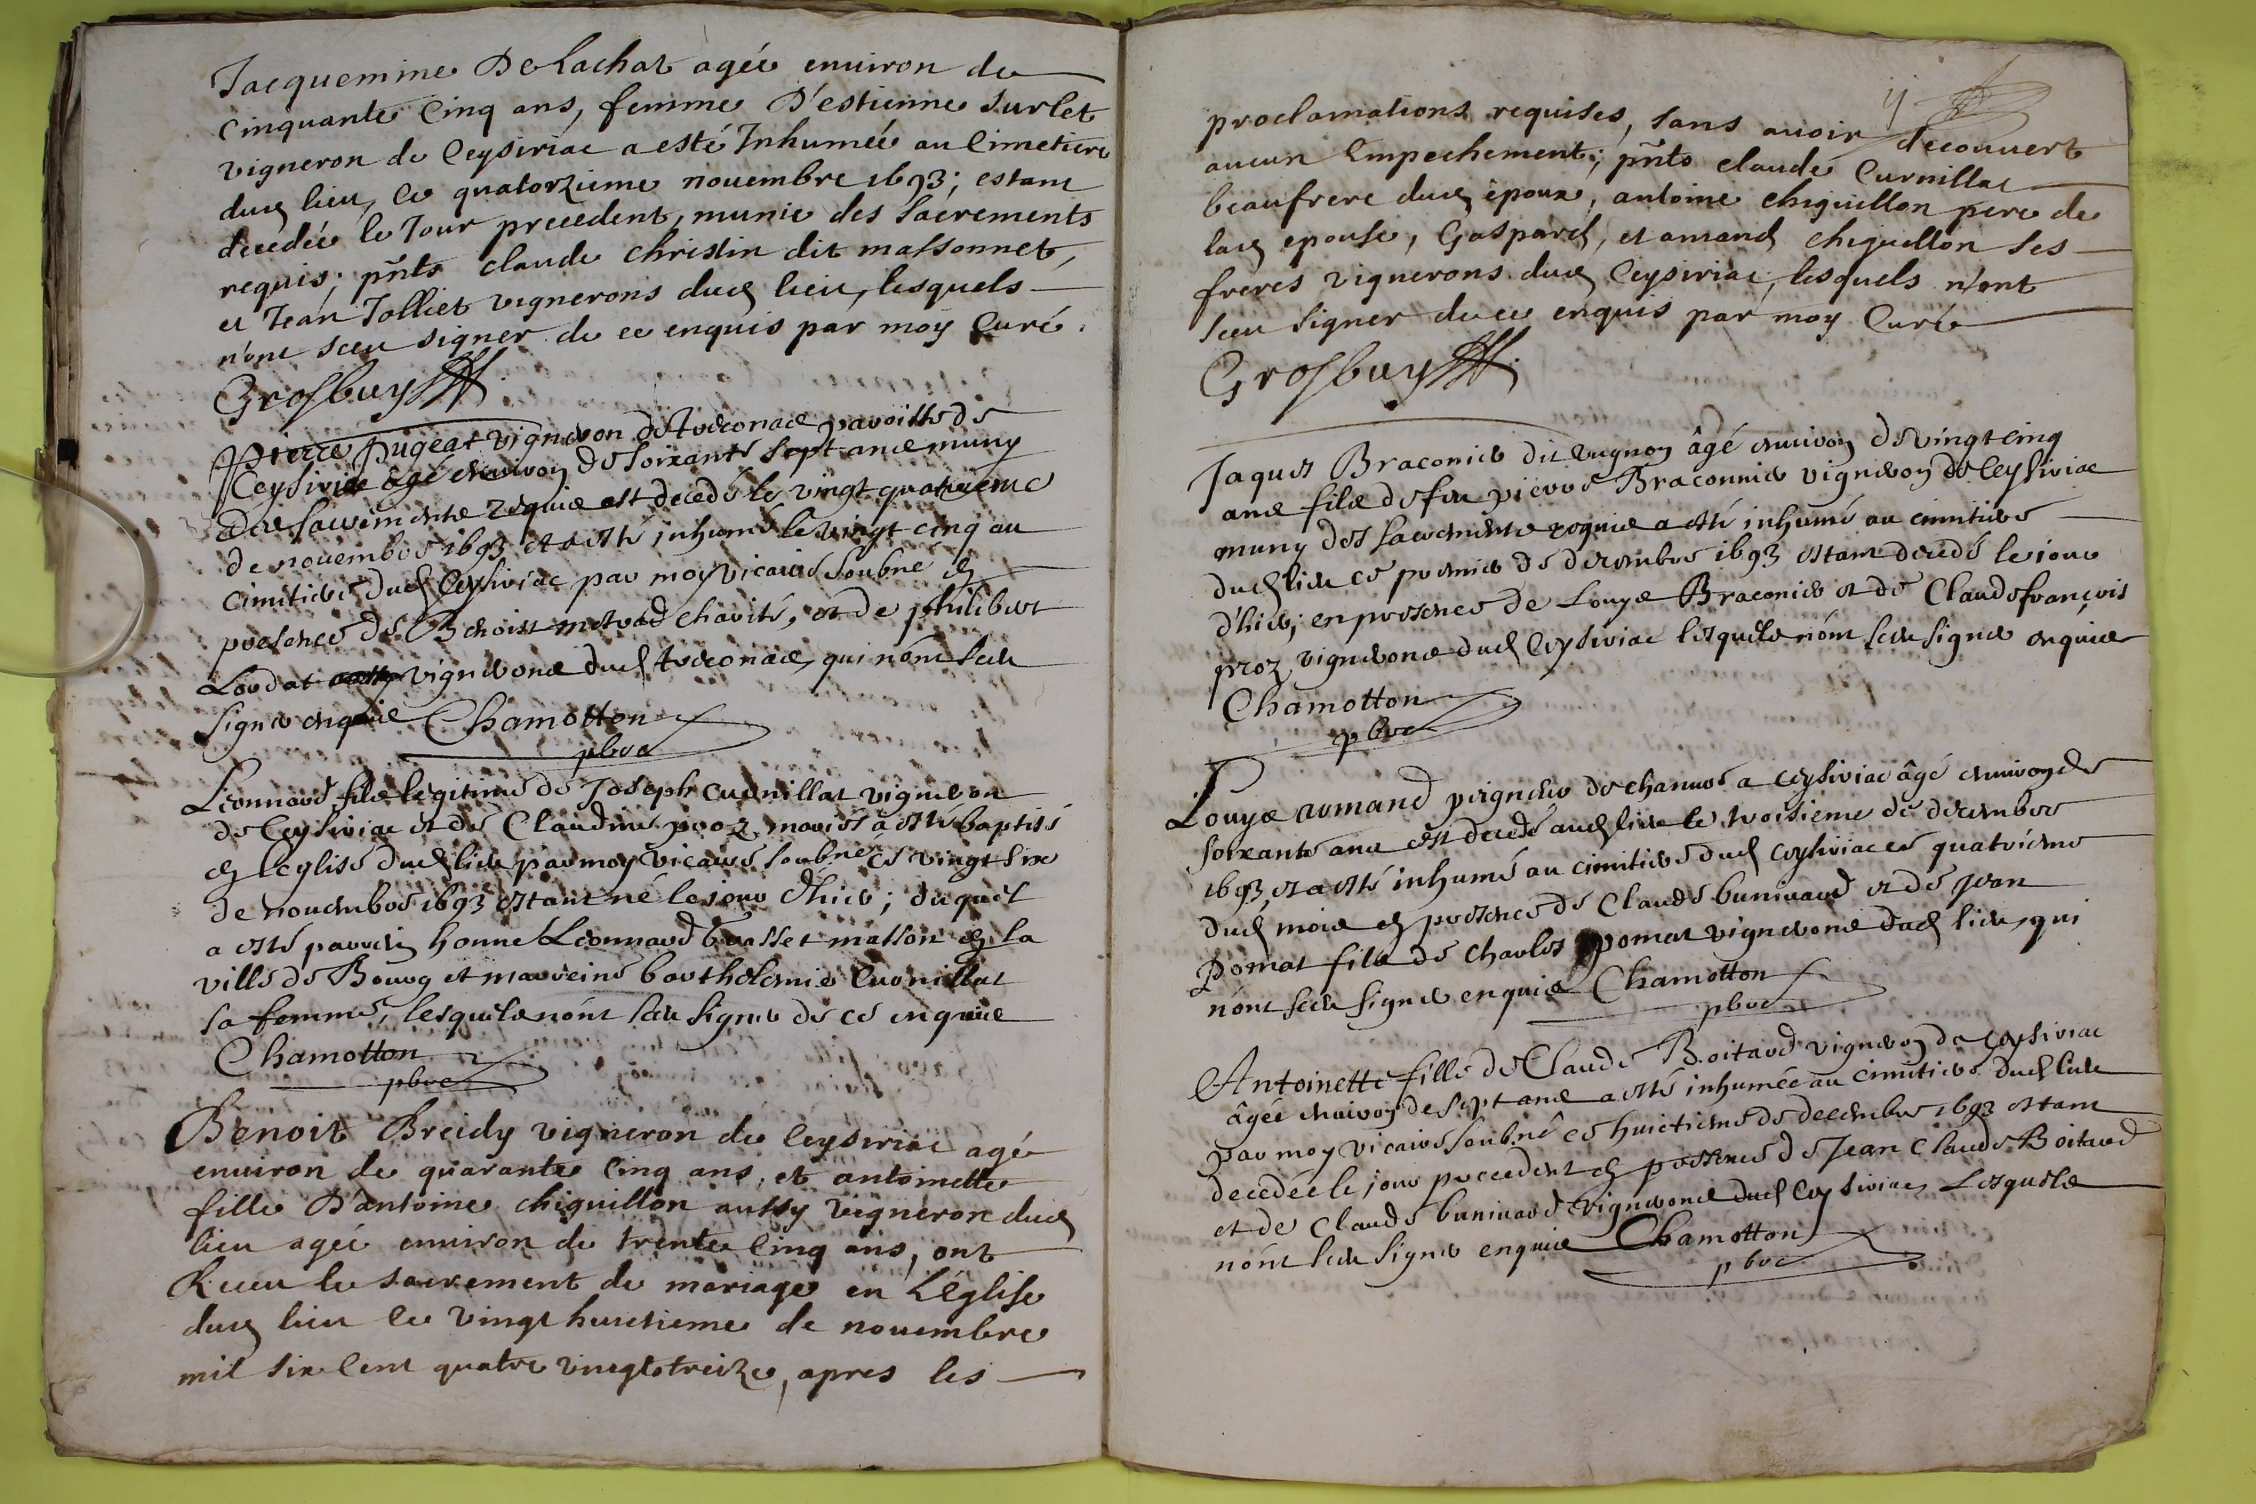 Jacquemine De Lachat agée enuiron de
cinquante cinq ans, femme D'estienne surlet
vigneron de Ceysiriac a esté Inhumée au Cimetiere
dud lieu, ce quatorzieme nouembre 1693; estant
decedée le Jour precedent, munie des sacrements
requis; pnts claude christin dit massonnet,
et Jean Jolliet vignerons dud lieu, lesquels
n'ont sceu signer de ce enquis par moy Curé.
Grosbuy
Pierre Pugeat vigneron de paroisse de
Ceysiriac âgé enuiron de soixante sept ans muny
des sacrements requis est decedé le vingt quatrieme
de nouembre 1693 et a esté inhumé le vingt cinq au
cimitiere dud Ceysiriac par moy vicaire soubné en
presence de Benoist charité, et de philibert
Loudat vignerons dud qui n'ont sceu
signer enquis Chamotton
pbre
Leonnard fils legitime de Joseph Curnillat vigneron
de Ceysiriac et de Claudine proz mariés a esté baptisé
en leglise dud lieu par moy vicaire soubné ce vingt six
de nouembre 1693 estant né le jour d'hier; duquel
a esté parrein honné Leonnard brasset masson en la
ville de Bourg et marreine barthelemie Curnillat
sa femme, lesquels n'ont sceu signer de ce enquis
Chamotton
pbre
Benoit Breidy vigneron de Ceysiriac agé
enuiron de quarante Cinq ans, et antoinette
fille D'antoine chiquillon aussy vigneron dud
lieu agée enuiron de trente Cinq ans, ont
Receu le sacrement de mariage en L'église
dud lieu le vingt huictieme de nouembre
mil six Cent quatre vingts treize, apres les
proclamations requises, sans auoir decouuert
aucun Empechement; pnts claude Curnillat
beaufrere dud époux, antoine chiquillon pere de
lad epouse, Gaspard, et amand chiquillon ses
freres vignerons dud Ceysiriac, lesquels n'ont
sceu signer de ce enquis par moy Curé
Grosbuy
Jaques Braconier dit âgé enuiron de vingt cinq
ans fils de feu pierre Braconnier vigneron de Ceysiriac
muny des sacrements requis a esté inhumé au cimitiere
dud lieu ce premier de decembre 1693 estant decedé le jour
d'hier; en presence de Louys Braconier et de Claude françois
proz vignerons dud Ceysiriac lesquels n'ont sceu signer enquis
Chamotton
pbre
Louys armand peigneur de chanure a ceysiriac âgé enuiron de
soixante ans est decedé aud lieu le troisieme de decembre
1693, et a esté inhumé au cimitiere dud ceysiriac ce quatrieme
dud mois en presence de Claude buniuard et de jean
Pomat fils de charles Pomat vignerons dud lieu, qui
n'ont sceu signer enquis Chamotton
pbre
Antoinette fille de Claude Boitard vigneron de Ceysiriac
âgée enuiron de sept ans a esté inhumée au cimitiere dud lieu
par moy vicaire soubné ce huictieme de decembre 1693 estant
decedée le jour precedent en presence de Jean Claude Boitard
et de Claude buniuard vignerons dud Ceysiriac Lesquels
n'ont sceu signer enquis Chamotton
pbre